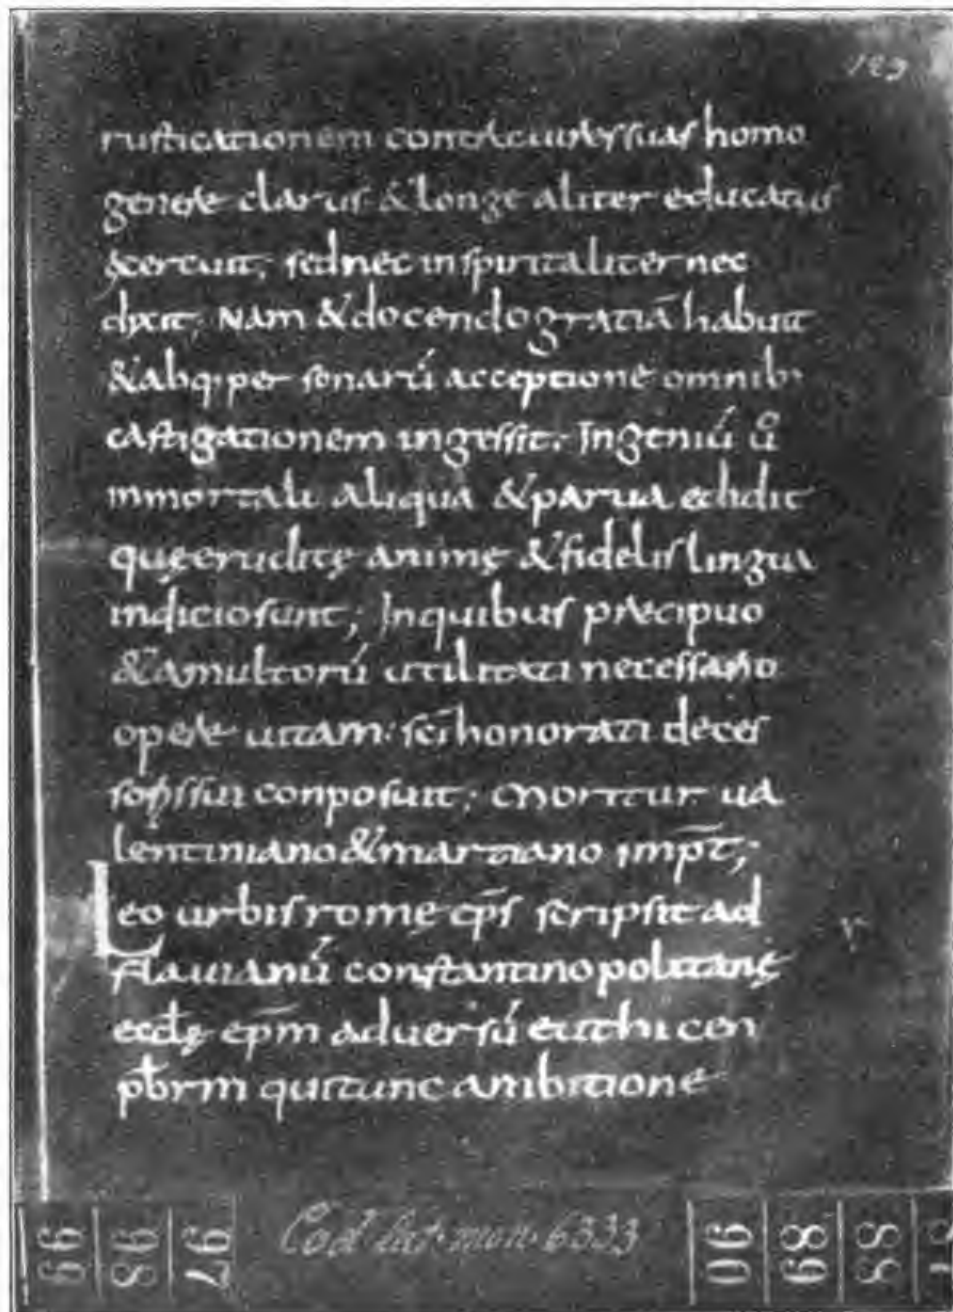 rusticationem contra suas homo
genere clarus & longe aliter educatus
sed nec in spiritaliter nec
Nam & docendo gratiā habuit
& abq; per senarū acceptione omnib;
castigationem ingessit. Ingeniū uͦ
inmortali aliqua & parua edidit
quę eruditę animę & fidelis lingua
indicio sunt; In quibus precipuo
& a multorū utilitati necessario
opere uitam: scī honorati deces
sui conposuit; Moritur ua
lentiniano & martiano imp̄t;
Leo urbis romę ep̄s scripsit ad
flauianū constantinopolitanę
eccłę ep̄m aduersū euthicen
pƀrm qui tunc ambitione
Cod. lat. mon. 6333
99 98 97 90 89 88